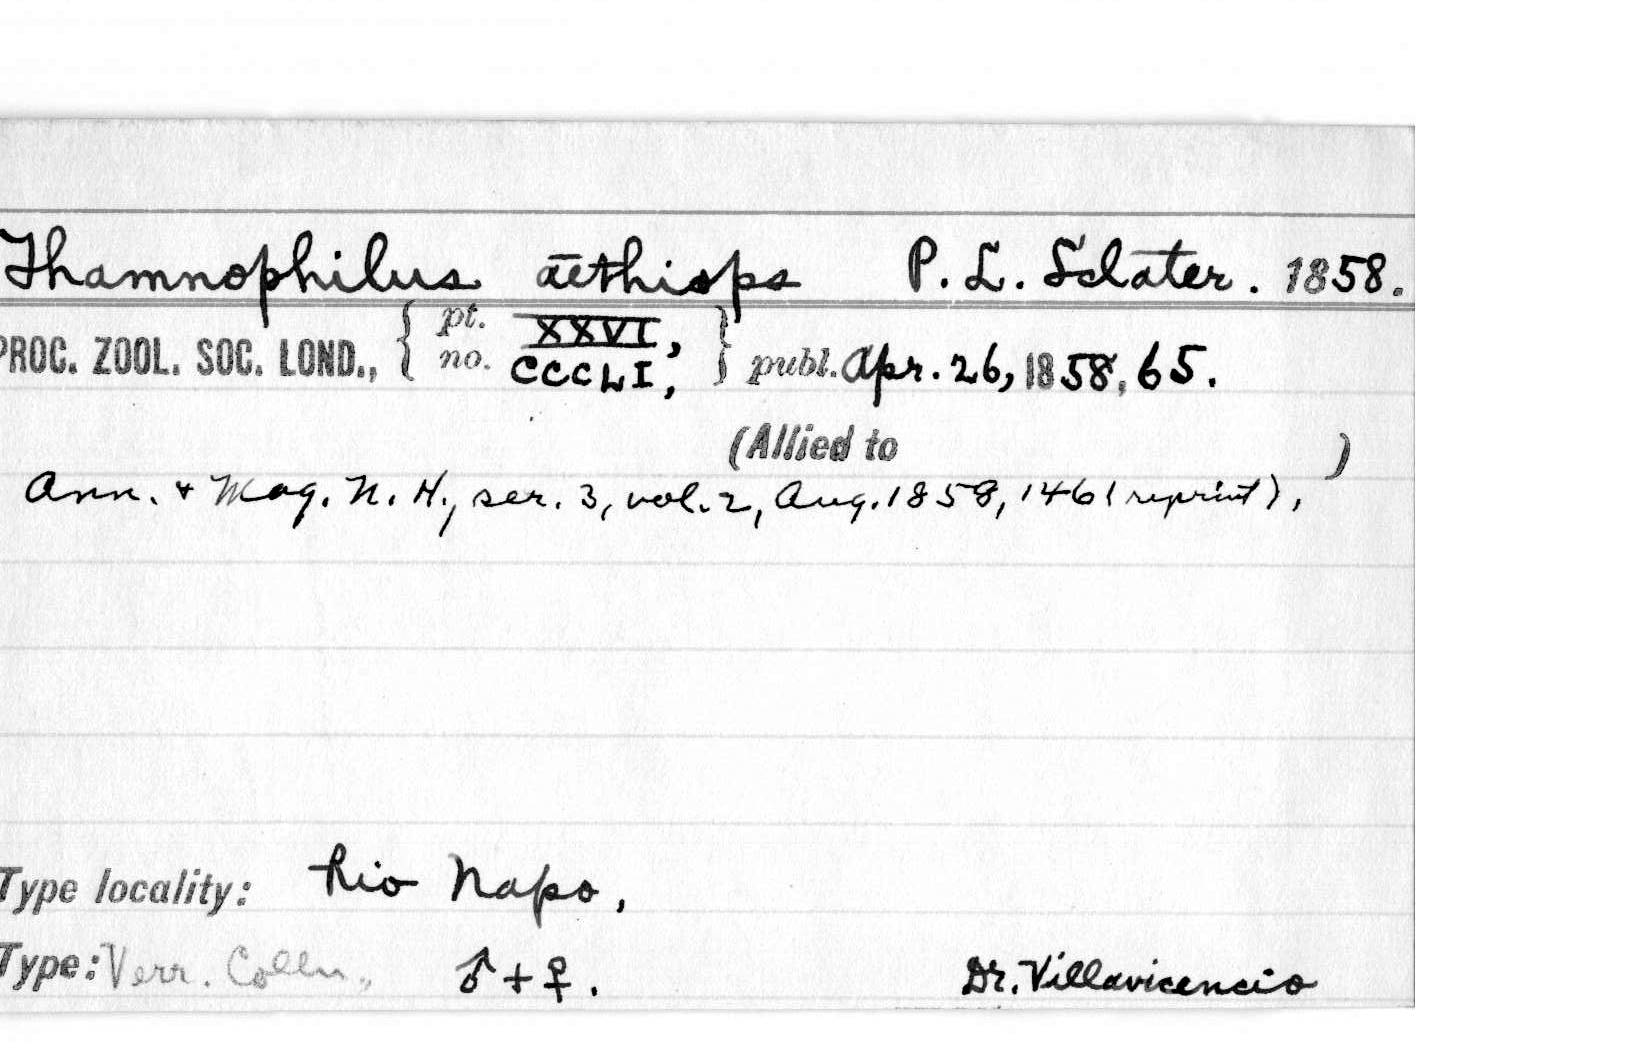 Thamnophilus aethiops P. L. Sclater. 1858.
PROC. ZOOL. SOC. LOND., { pt. XXVI, no. CCCLI, } publ. Apr. 26, 1858, 65.
(Allied to )
Ann. + Mag. N. H., ser. 3, vol. 2, Aug. 1858, 146 (reprint),
Type locality: Rio Napo,
Type: Verr. Colln., ♂ + ♀. Dr. Villavicencio